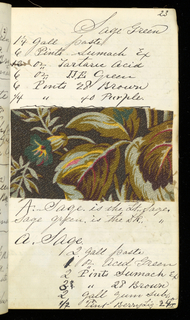 23
Sage Green
1/4 gall paste
6 Pints Sumach Ex
oz Tartaric Acid
6 oz Green
6 Pints 28 Brown
1/4 " 40 Purple
A. Sage is the
Sage green is the
A. Sage
2 gall paste
oz Acid Green
2 Pints Sumach Ex
" 28 Brown
2 gall Gum
1/2 Pint Berry